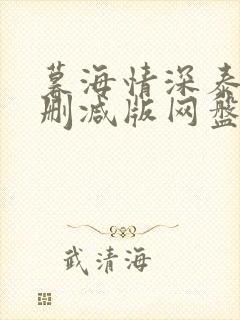 慕海情深泰
删减版网盘
武清海